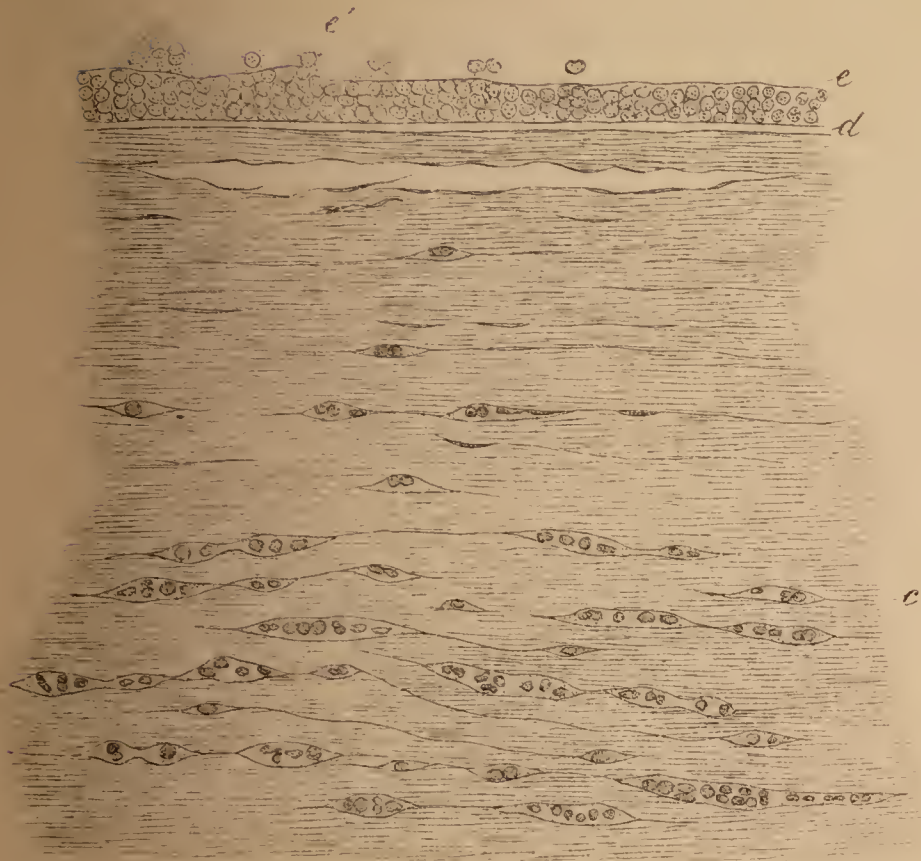 e'
e
d
c